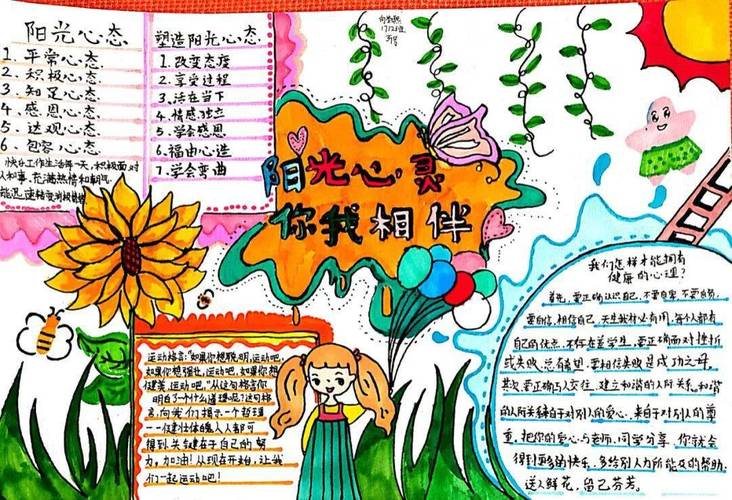 阳光心态
1、平常心态
2、积极心态
3、知足心态
4、感恩心态
5、达观心态
6、包容心态
塑造阳光心态
1、改变态度
2、享受过程
3、活在当下
4、情感独立
5、学会感恩
6、福由心造
7、学会弯曲
阳光心灵
你我相伴
运动格言:“如果你想聪明,运动吧,
如果你想强壮,运动吧,如果你想
健美,运动吧。”从这句格言你
明白了个什么道理呢?这句格
言,向我们揭示一个哲理
得到关键在于自己的努
力。加油!从现在开始,让我
们一起运动吧!
我们怎样才能拥有
健康的心理?
首先,要正确认识自己,不要自卑,不要自负,
要自信,相信自己,天生我材必有用,每个人都有
自己的优点,不存在差学生,要正确面对挫折
或失败,总的望,要相信失败是成功之母。
其次,要正确与人交往,建立和谐的人际关系,和谐
的人际关系来自于对别人的爱心,来自于对别人的尊
重,把你的爱心与老师、同学分享,你就会
得到更多的快乐,多给别人力所能及的帮助,
送人鲜花,留己芬芳。